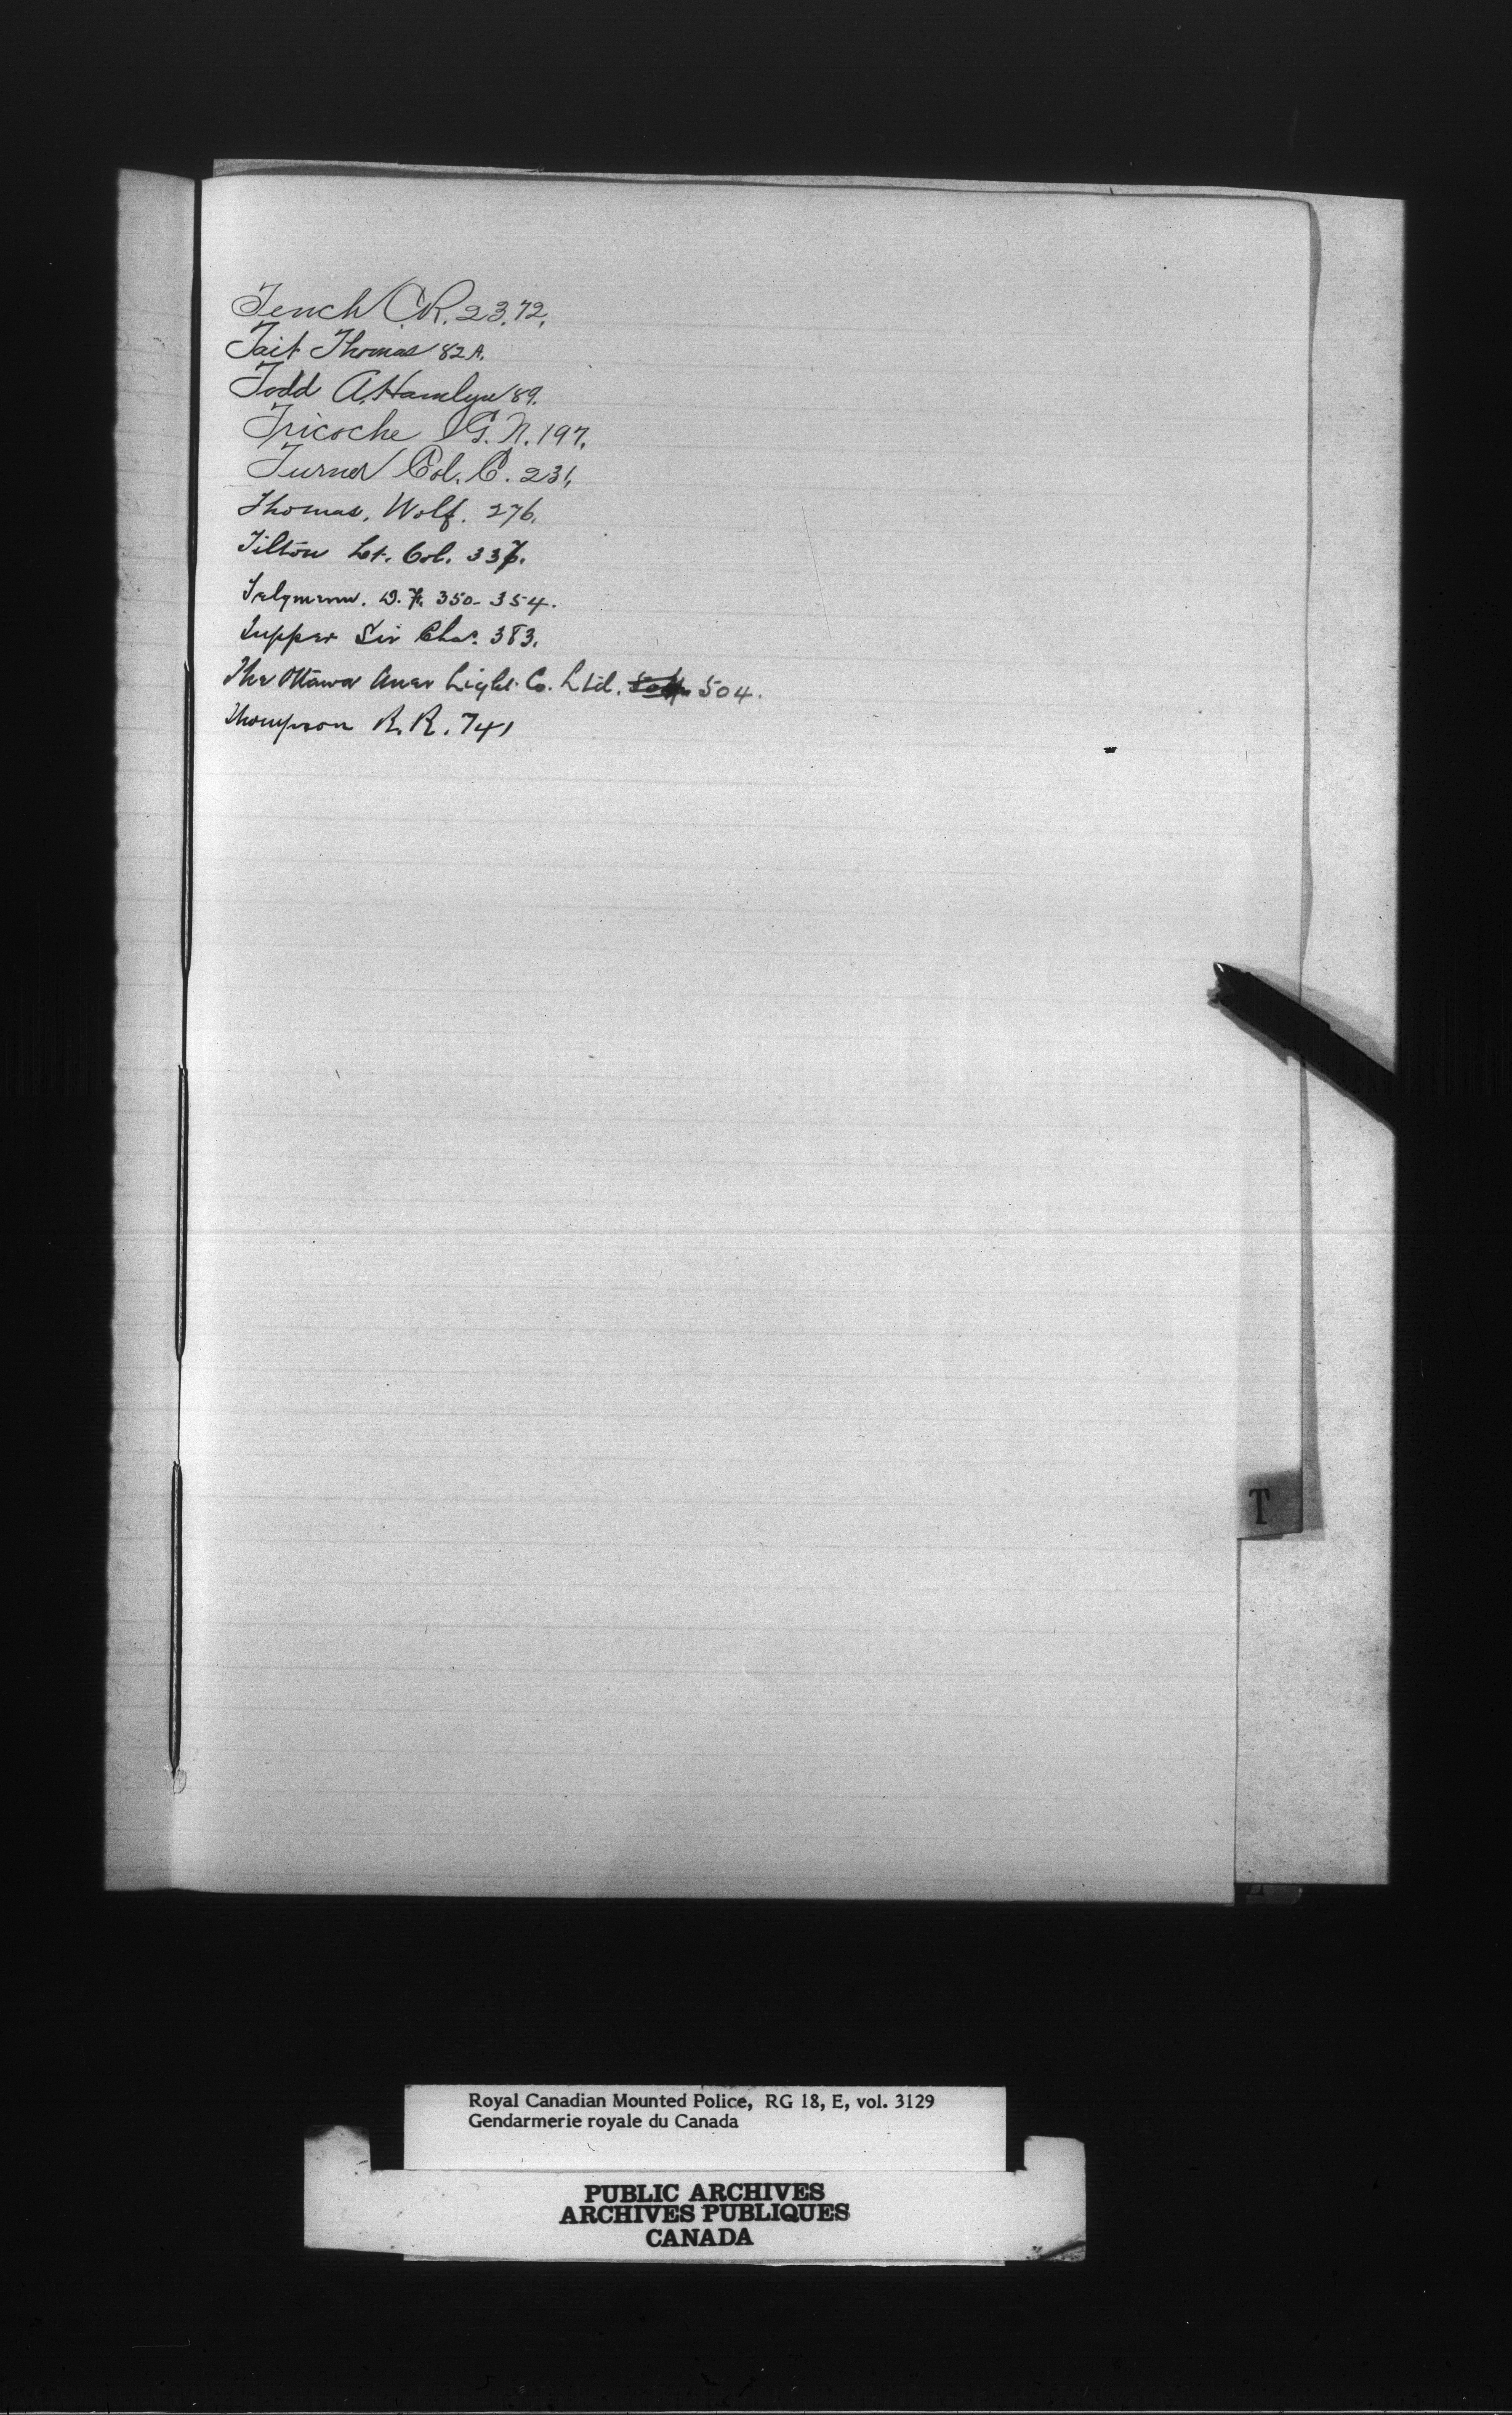 Tench C.R. 23.72.
Tait Thomas 82A.
Todd A. Hamlyn 89.
Tricoche G. N. 197.
Turner Col. C. 231.
Thomas, Wolf. 276.
Tilton Lt. Col. 337.
350-354.
Tupper Sir Chas. 383.
The Ottawa Auer Light Co. Ltd. 504.
Thompson R. R. 741
T
Royal Canadian Mounted Police, RG 18, E, vol. 3129
Gendarmerie royale du Canada
PUBLIC ARCHIVES
ARCHIVES PUBLIQUES
CANADA